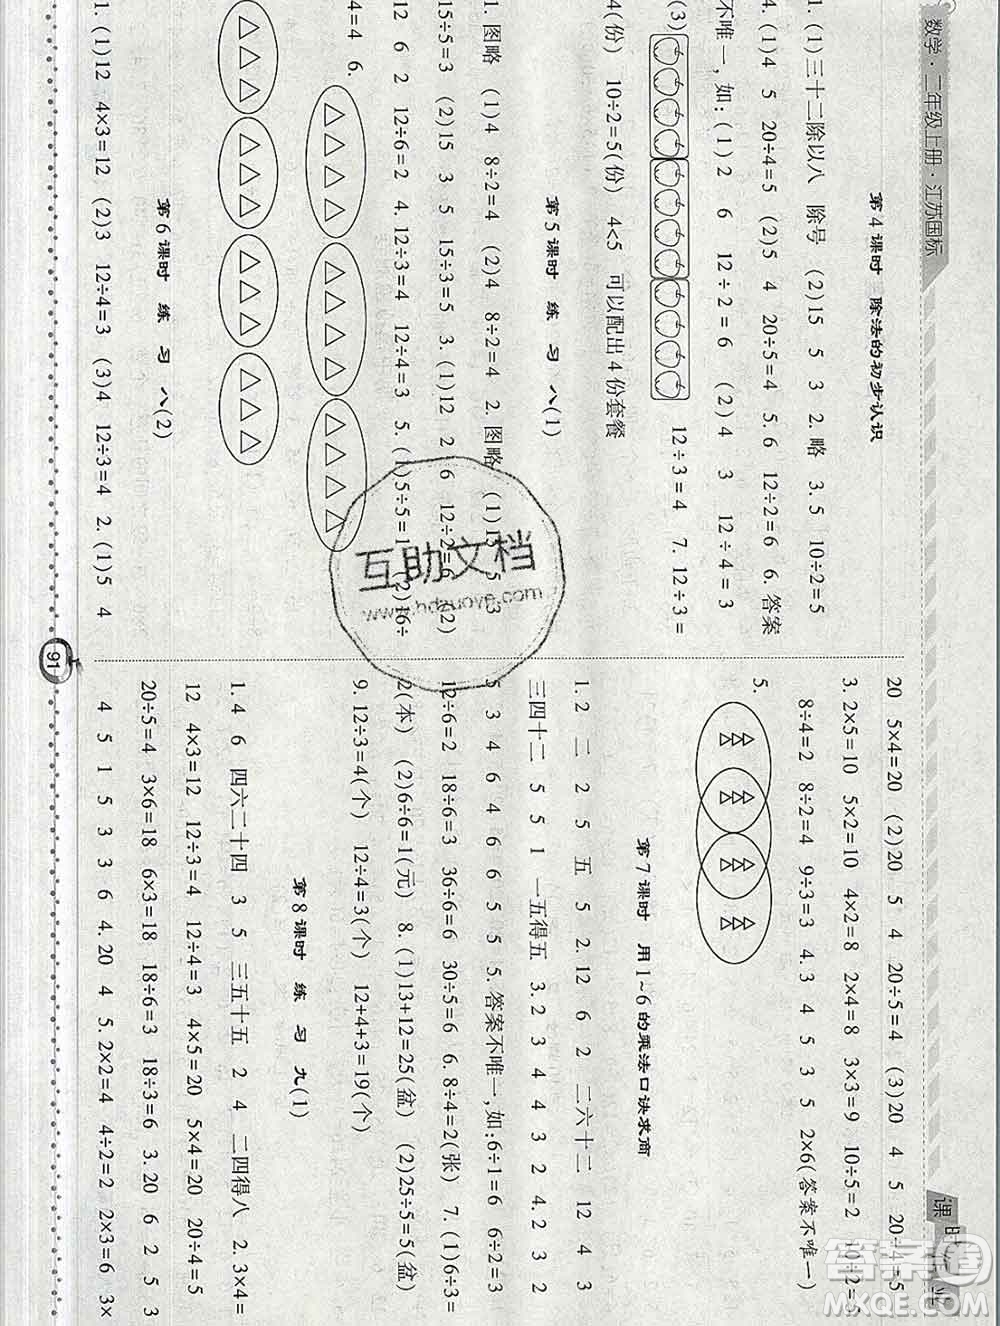 数学·二年级上册·江苏国标
课时作业
第4课时 除法的初步认识
1. (1)三十二除以八 除号 (2)15 5 3 2. 略 3. 5 10÷2=5
4. (1)4 5 20÷4=5 (2)5 4 20÷5=4 5. 6 12÷2=6 6. 答案
不唯一,如:(1)2 6 12÷2=6 (2)4 3 12÷4=3
(3) 12÷3=4 7. 12÷3=
4(份) 10÷2=5(份) 4<5 可以配出4份套餐
第5课时 练 习 八(1)
1. 图略 (1)4 8÷2=4 (2)4 8÷2=4 2. 图略 (1)15 5 3
15÷5=3 (2)15 3 5 15÷3=5 3. (1)12 2 6 12÷2=6 (2)
12 6 2 12÷6=2 4. 12÷3=4 12÷4=3 5. (1)5÷5=1 (2)16÷
4=4 6.
第6课时 练 习 八(2)
1. (1)12 4×3=12 (2)3 12÷4=3 (3)4 12÷3=4 2. (1)5 4
20 5×4=20 (2)20 5 4 20÷5=4 (3)20 4 5 20÷4=5
3. 2×5=10 5×2=10 4×2=8 2×4=8 3×3=9 10÷5=2 10÷2=5
8÷4=2 8÷2=4 9÷3=3 4. 3 4 5 3 5 2×6(答案不唯一)
5.
第7课时 用1~6的乘法口诀求商
1. 2 二 2 5 五 5 2. 12 6 2 二六十二 12 4 3
三四十二 5 5 1 一五得五 3. 2 3 4 4 3 2 4. 2 3 2
5 3 4 6 4 6 6 5 5 5. 答案不唯一,如:6÷1=6 6÷2=3
12÷6=2 18÷6=3 36÷6=6 30÷5=6 6. 8÷4=2(张) 7. (1)6÷3=
2(本) (2)6÷6=1(元) 8. (1)13+12=25(盆) (2)25÷5=5(盆)
9. 12÷3=4(个) 12÷4=3(个) 12+4+3=19(个)
第8课时 练 习 九(1)
1. 4 6 四六二十四 3 5 三五十五 2 4 二四得八 2. 3×4=
12 4×3=12 12÷3=4 12÷4=3 4×5=20 5×4=20 20÷4=5
20÷5=4 3×6=18 6×3=18 18÷6=3 18÷3=6 3. 20 6 2 5 3
4 5 1 5 3 3 6 4. 20 4 5. 2×2=4 4÷2=2 2×3=6 3×
91
互助文档
www.hdzuoye.com
答案圈
MXQE.COM